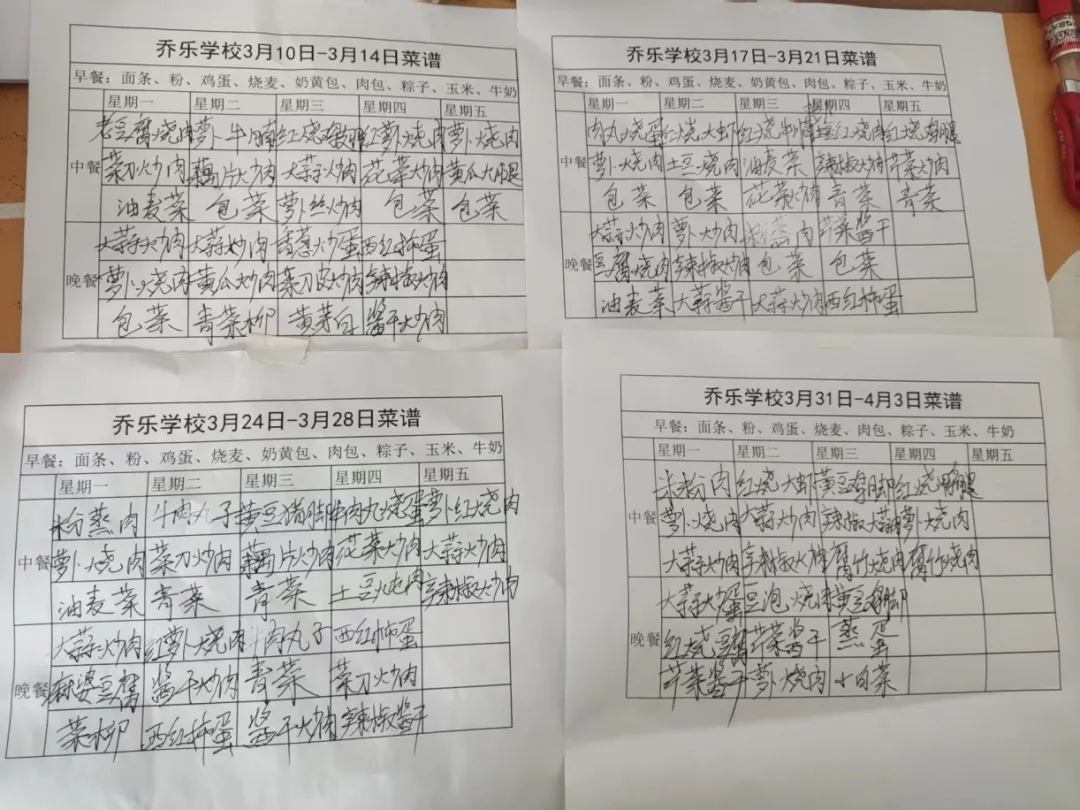 乔乐学校3月10日-3月14日菜谱
早餐：面条、粉、鸡蛋、烧麦、奶黄包、肉包、粽子、玉米、牛奶
星期一 星期二 星期三 星期四 星期五
老豆腐烧肉 萝卜牛腩 红烧 红萝卜烧肉 萝卜烧肉
中餐 菜刀炒肉 藕片炒肉 大蒜炒肉 花菜炒肉 黄瓜火腿
油麦菜 包菜 萝卜丝炒肉 包菜 包菜
大蒜炒肉 大蒜炒肉 香葱炒蛋 西红柿蛋
晚餐 萝卜烧肉 黄瓜炒肉 菜刀皮炒肉 辣椒炒肉
包菜 青菜柳 黄芽白 酱干炒肉
乔乐学校3月17日-3月21日菜谱
早餐：面条、粉、鸡蛋、烧麦、奶黄包、肉包、粽子、玉米、牛奶
星期一 星期二 星期三 星期四 星期五
肉丸烧蛋 红烧大虾 红烧牛腩 红烧肉 红烧鸡腿
中餐 萝卜烧肉 土豆烧肉 油麦菜 辣椒炒肉 芹菜炒肉
包菜 包菜 花菜炒肉 青菜 青菜
大蒜炒肉 萝卜炒肉 粉蒸肉 芹菜酱干
晚餐 豆腐烧肉 辣椒炒肉 包菜 包菜
油麦菜 大蒜酱干 大蒜炒肉 西红柿蛋
乔乐学校3月24日-3月28日菜谱
早餐：面条、粉、鸡蛋、烧麦、奶黄包、肉包、粽子、玉米、牛奶
星期一 星期二 星期三 星期四 星期五
粉蒸肉 牛肉丸子 黄豆猪脚 牛肉丸烧蛋 萝卜红烧肉
中餐 萝卜烧肉 菜刀炒肉 藕片炒肉 花菜炒肉 大蒜炒肉
油麦菜 青菜 青菜 土豆炖肉 辣椒炒肉
大蒜炒肉 红萝卜烧肉 牛肉丸子 西红柿蛋
晚餐 麻婆豆腐 酱干炒肉 青菜 菜刀炒肉
菜柳 西红柿蛋 酱干炒肉 辣椒酱干
乔乐学校3月31日-4月3日菜谱
早餐：面条、粉、鸡蛋、烧麦、奶黄包、肉包、粽子、玉米、牛奶
星期一 星期二 星期三 星期四 星期五
米粉肉 红烧大虾 黄豆猪脚 红烧鸡腿
中餐 萝卜烧肉 大蒜炒肉 辣椒 萝卜烧肉
大蒜炒肉 辣椒炒肉 腐竹烧肉 腐竹烧肉
大蒜炒蛋 豆泡烧肉 黄豆猪脚
晚餐 红烧豆腐 芹菜酱干 蒸蛋
芹菜酱干 萝卜烧肉 小白菜